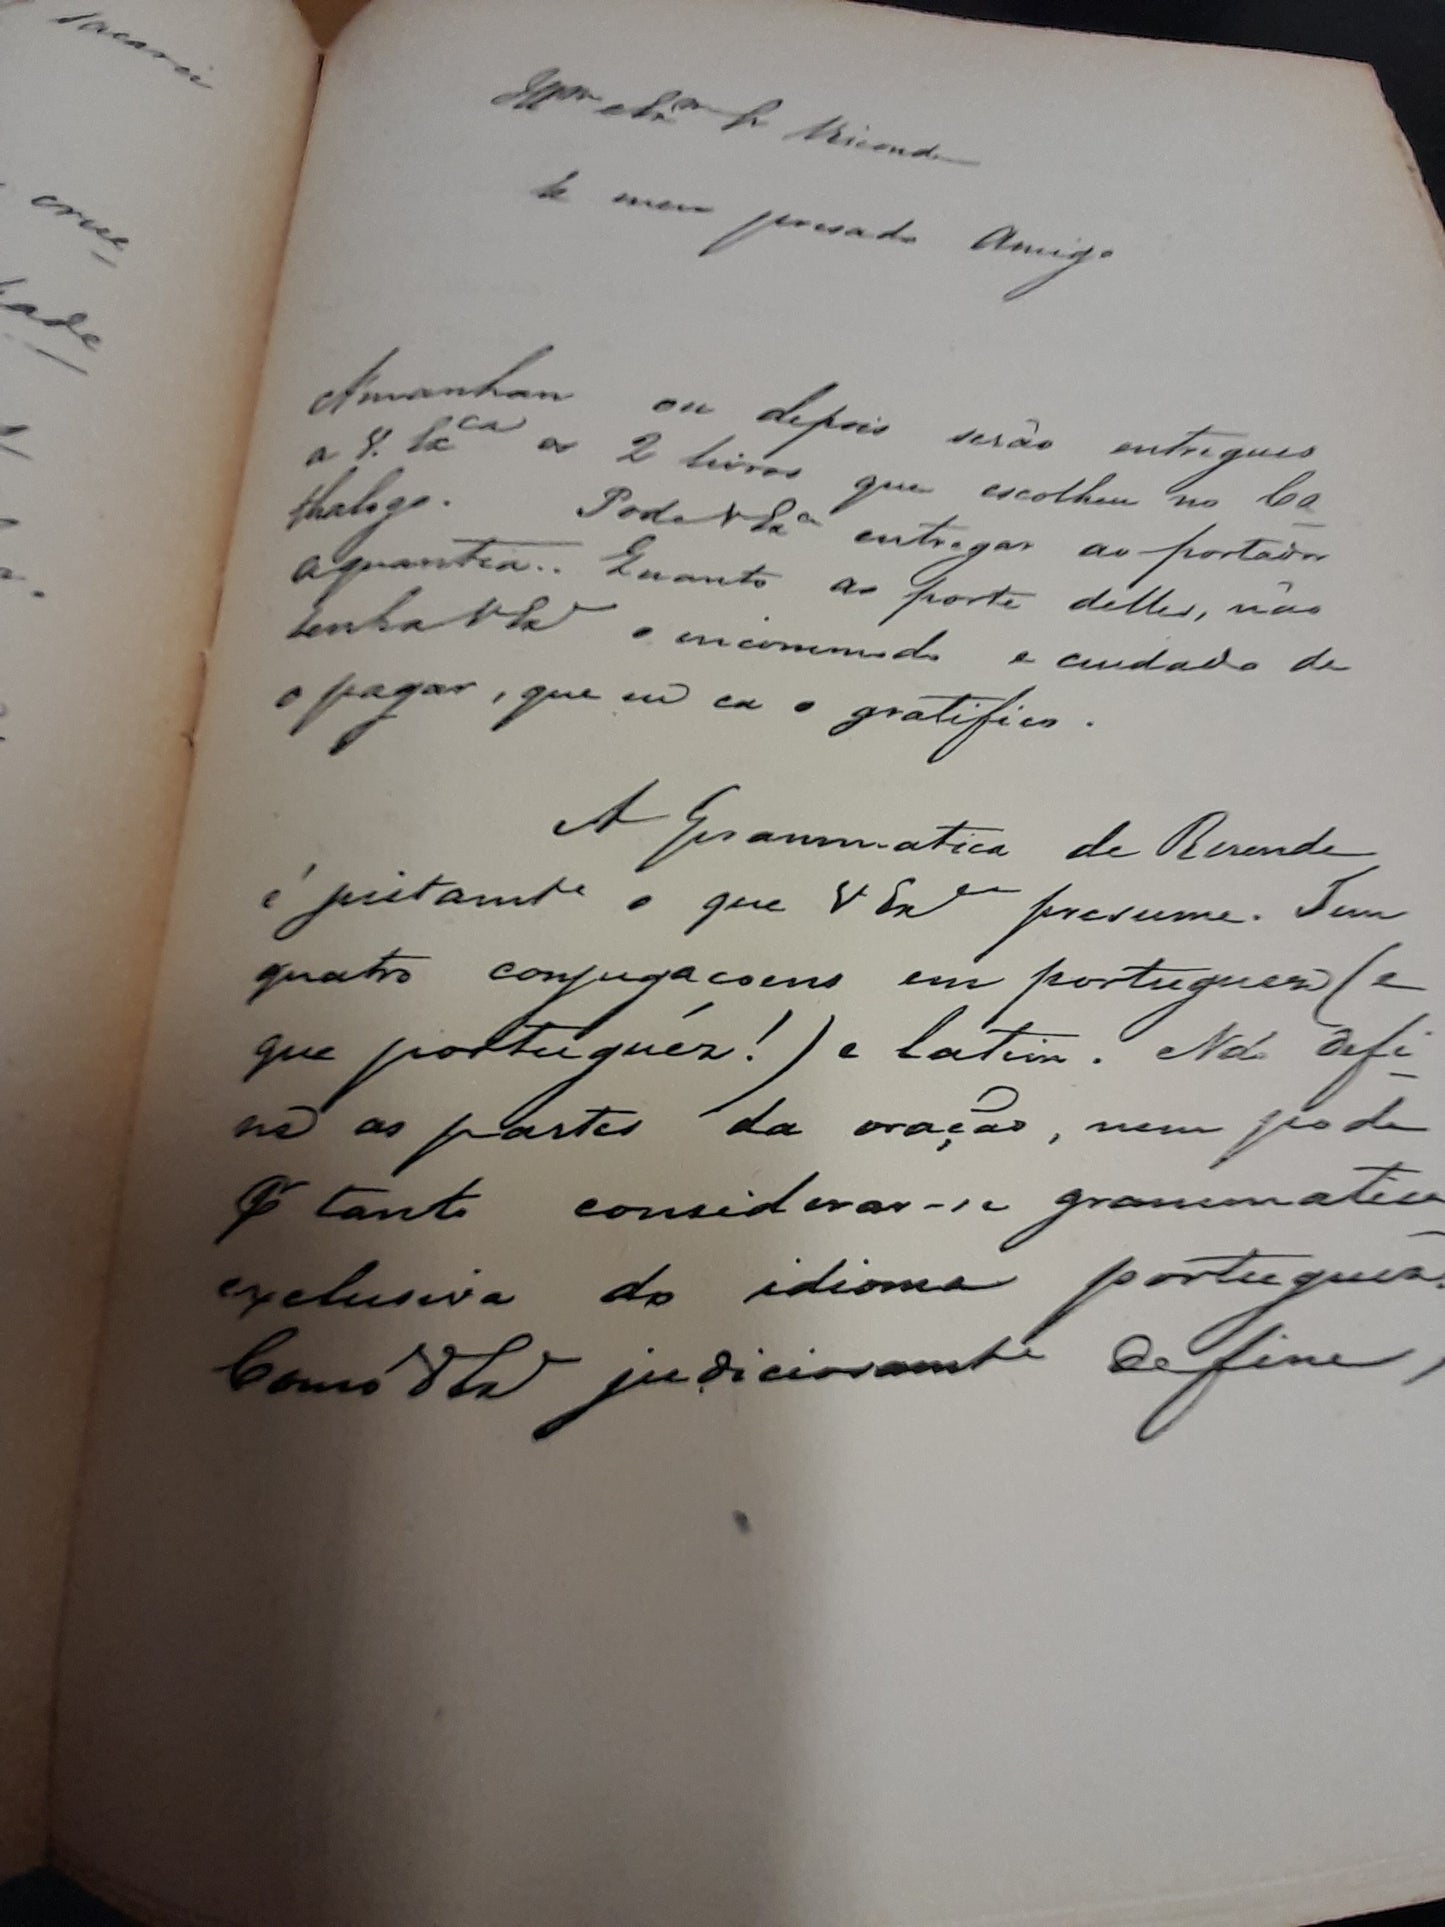 sacarei
crue
dade
Illmo e Exmo Sr Visconde
e meu presado Amigo
Amanhan ou depois serão entregues
a V. Exca os 2 livros que escolheu no Ca
thalogo. Pode V Exa entregar ao portador
a quantia.. Quanto ao porte delles, não
tenha V Exa o incommodo e cuidado de
o pagar, que eu ca o gratifico.
A Grammatica de Resende
é justamte o que V Exa presume. Tem
quatro conjugacoens em portuguez (e
que portuguéz!) e latim. Não defi-
ne as partes da oração, nem pode
tanto considerar-se grammatica
exclusiva do idioma portuguez.
Como V Exa judiciosamte define,